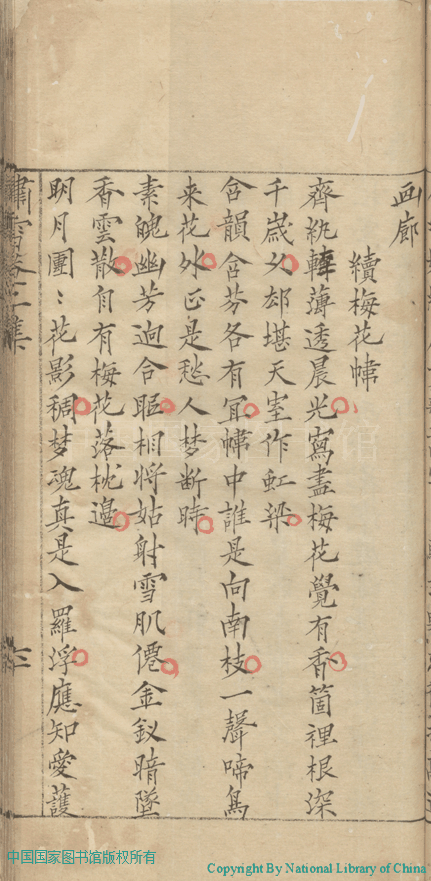 画廊
續梅花幃
齊紈轉薄透晨光寫盡梅花覺有香箇裡根深
千歲久却堪天室作虹梁
含韻含芬各有宜幃中誰是向南枝一聲啼鳥
来花外正是愁人梦斷時
素魄幽芳迥合暱相將姑射雪肌僊金釵暗墜
香雲散自有梅花落枕邉
明月團〻花影稠梦魂真是入羅浮應知愛護
中国国家图书馆版权所有
Copyright By National Library of China